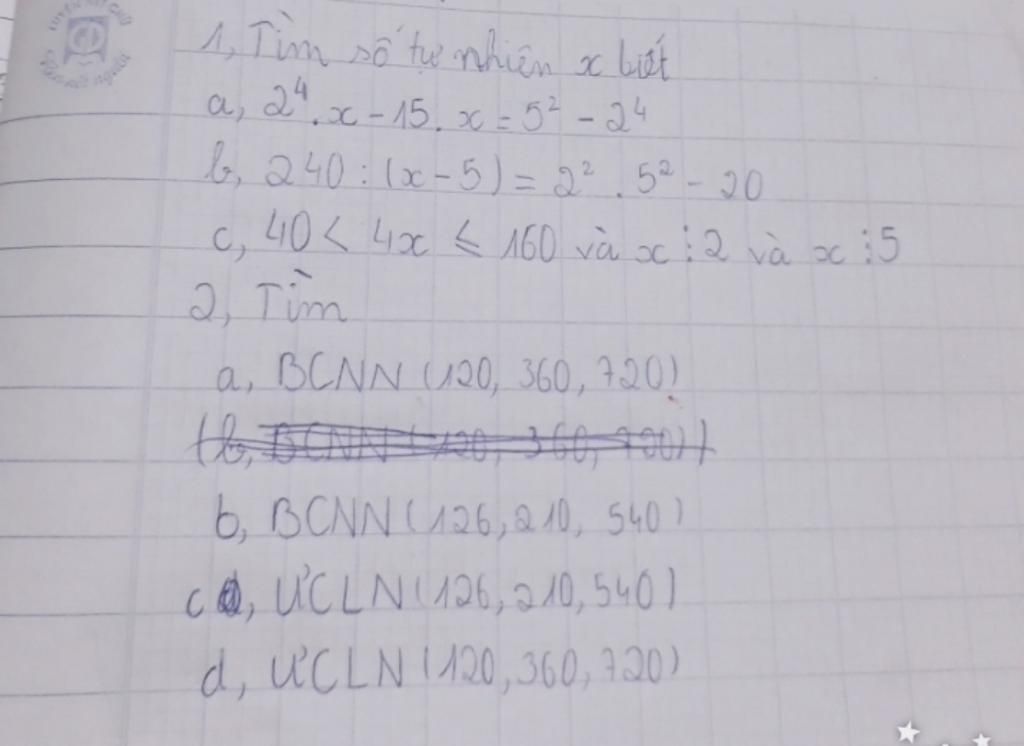 1, Tìm số tự nhiên x biết
a, 2⁴.x - 15.x = 5² - 2⁴
b, 240 : (x - 5) = 2² . 5² - 20
c, 40 < 4x ≤ 160 và x ⋮ 2 và x ⋮ 5
2, Tìm
a, BCNN (120, 360, 720)
(b, BCNN (120, 360, 720))
b, BCNN (126, 210, 540)
c, ƯCLN (126, 210, 540)
d, ƯCLN (120, 360, 720)